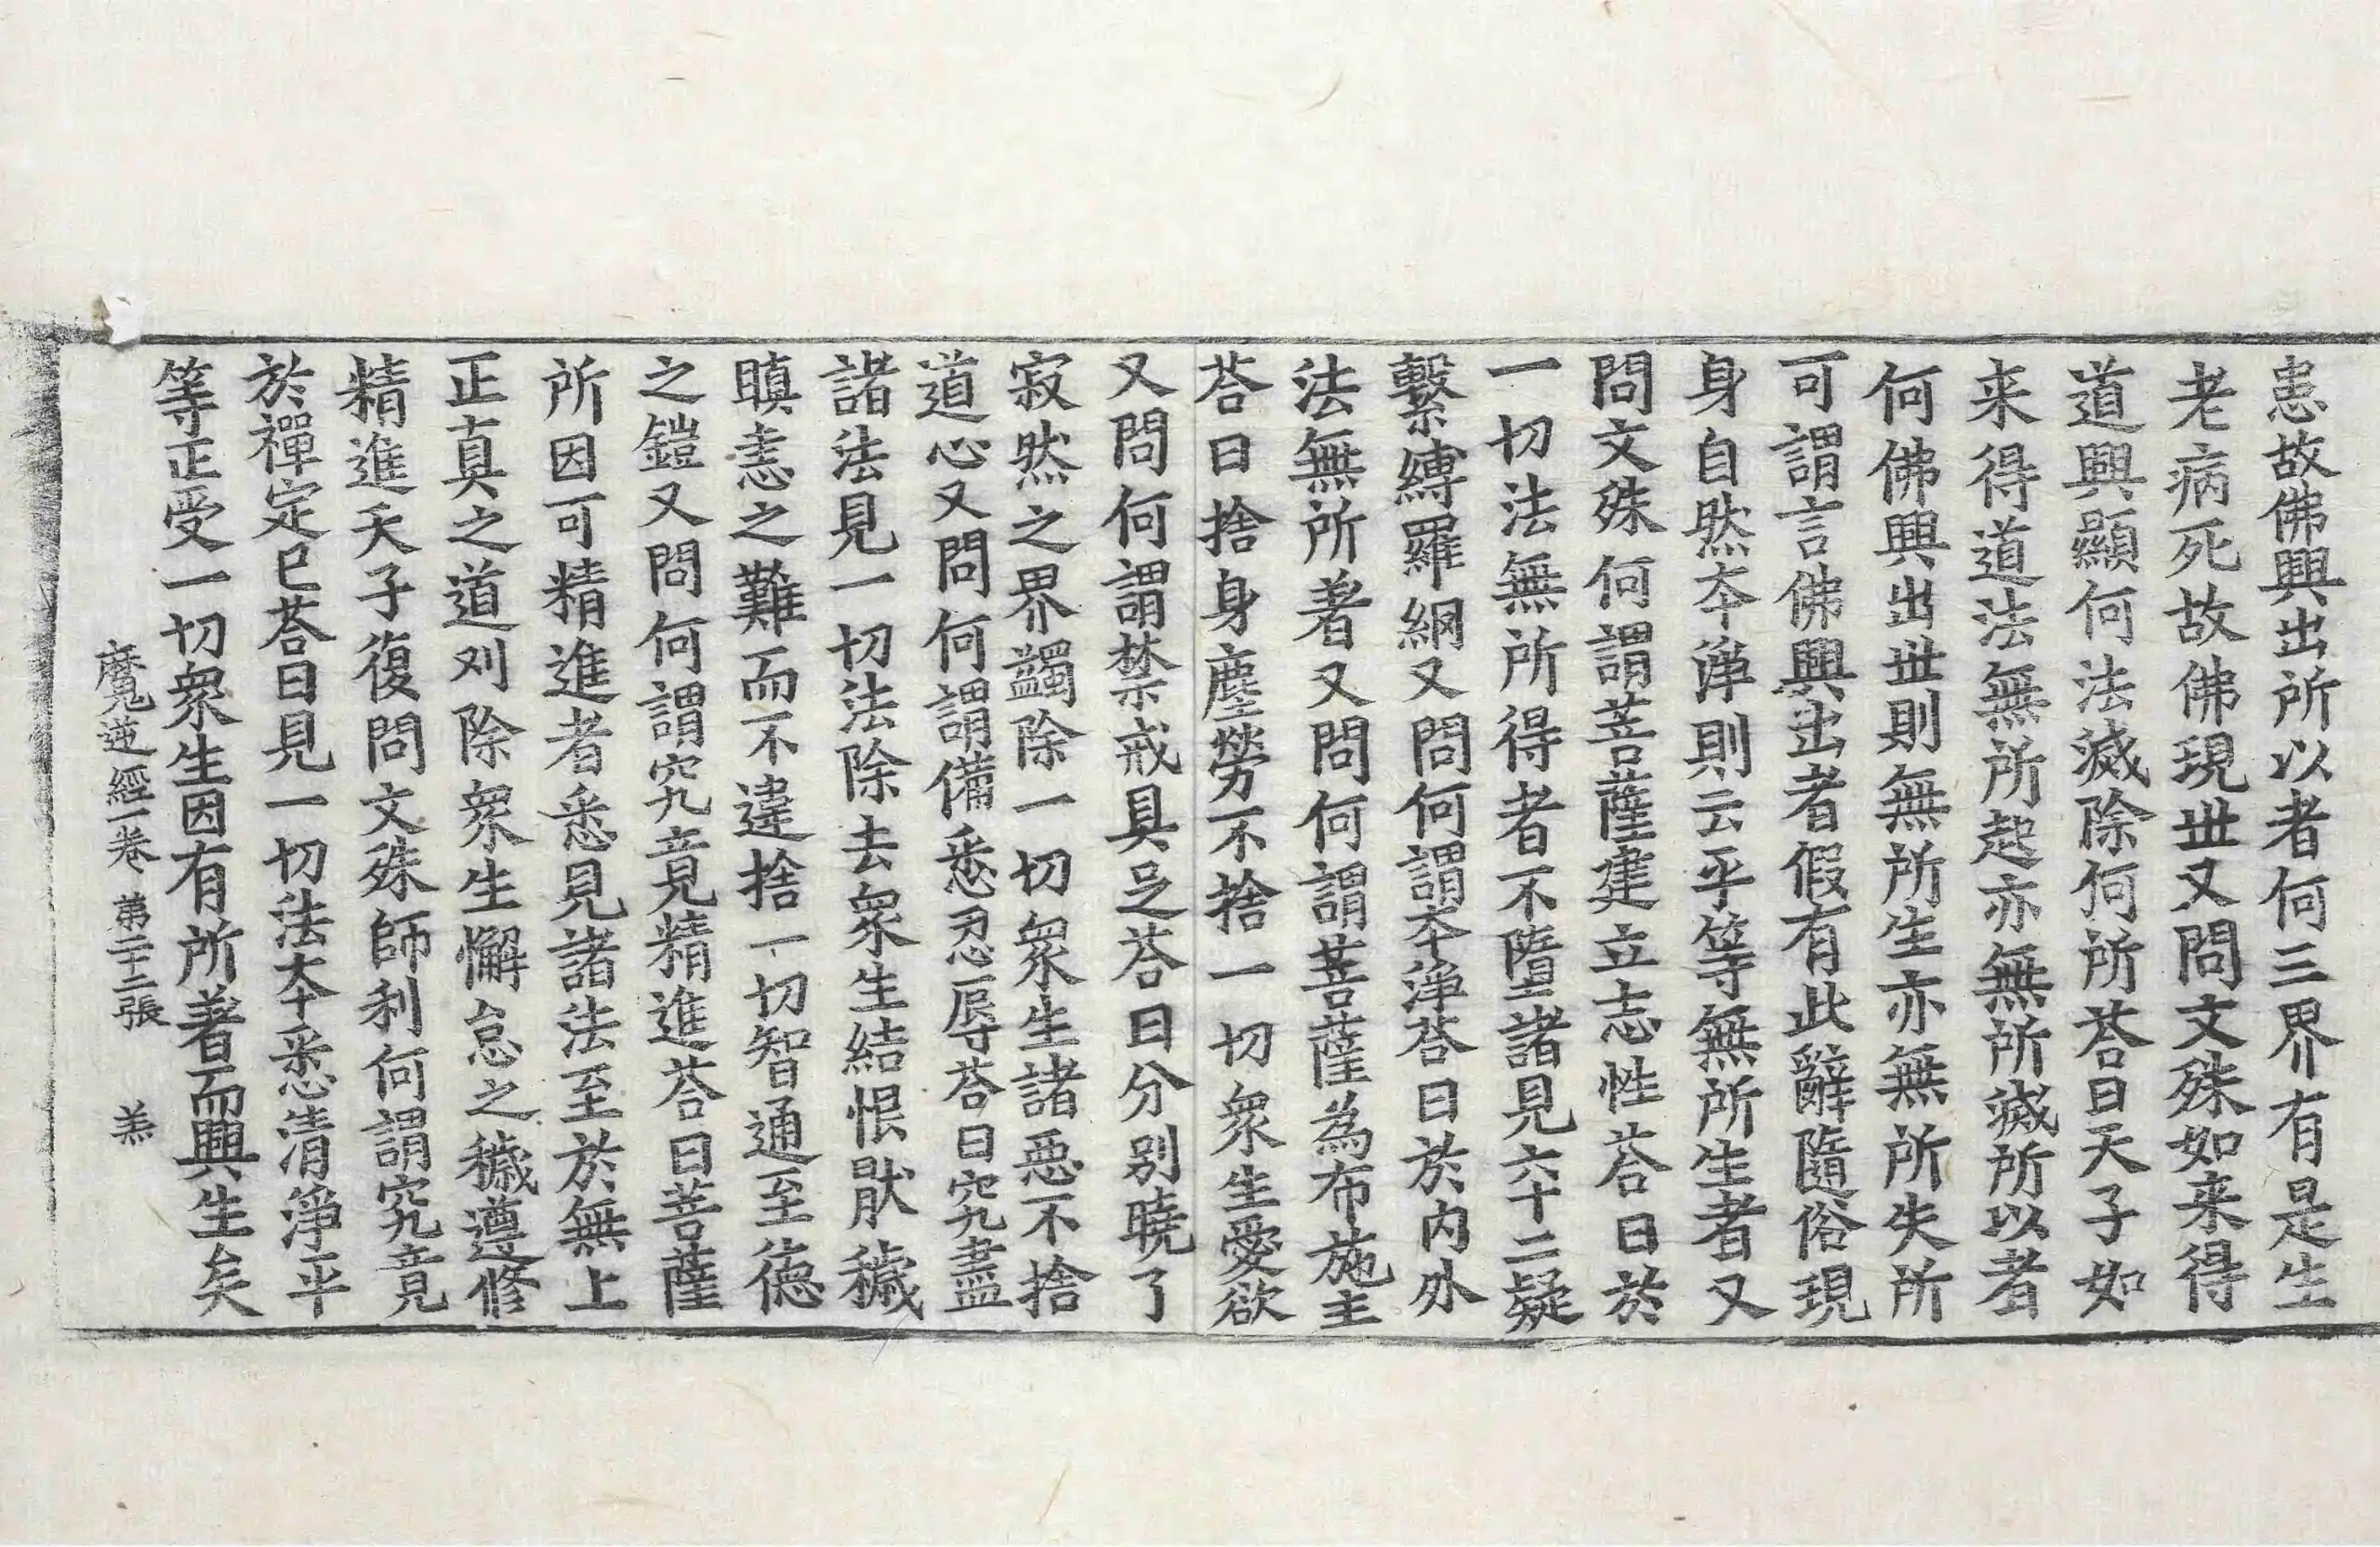 患故佛興出所以者何三界有是生
老病死故佛現世又問文殊如来得
道興顯何法滅除何所荅曰天子如
来得道法無所起亦無所滅所以者
何佛興出世則無所生亦無所失所
可謂言佛興出者假有此辭隨俗現
身自然本淨則云平等無所生者又
問文殊何謂菩薩建立志性荅曰於
一切法無所得者不墮諸見六十二疑
繫縛羅網又問何謂本淨荅曰於内外
法無所著又問何謂菩薩為布施主
荅曰捨身塵勞不捨一切衆生愛欲
又問何謂禁戒具足荅曰分别曉了
寂然之界蠲除一切衆生諸惡不捨
道心又問何謂備悉忍辱荅曰究盡
諸法見一切法除去衆生結恨猒穢
瞋恚之難而不違捨一切智通至德
之鎧又問何謂究竟精進荅曰菩薩
所因可精進者悉見諸法至於無上
正真之道刈除衆生懈怠之穢遵修
精進天子復問文殊師利何謂究竟
於禪定已荅曰見一切法本悉清淨平
等正受一切衆生因有所著而興生矣
魔逆經一卷 第二十二張 羔